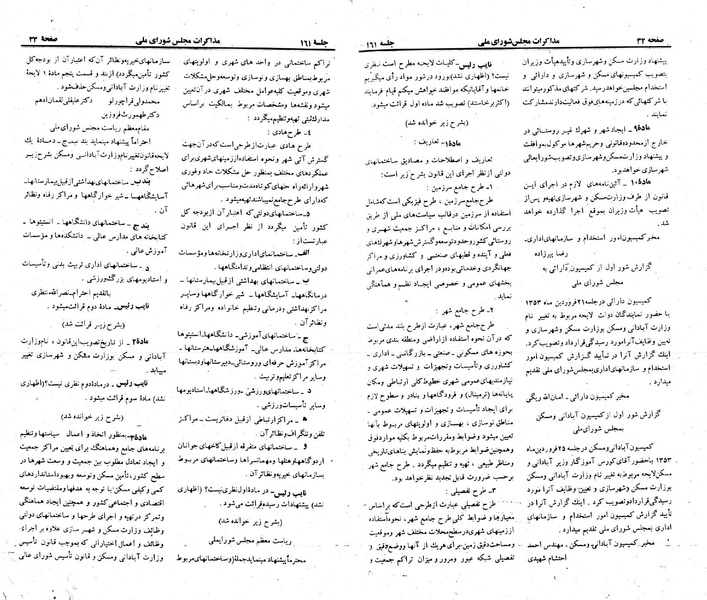 صفحه ۳۲ مذاکرات مجلس شورای ملی جلسه ۱۶۱
پیشنهاد وزارت مسکن و شهرسازی و تأیید هیأت وزیران
بتصویب کمیسیونهای مسکن و شهرسازی و دارائی و
استخدام مجلسین خواهد رسید. شرکتهای مذکور میتوانند
با شرکتهائی که در زمینه‌های فوق فعالیت دارند مشارکت
نمایند.
ماده ۹ـ ایجاد شهر و شهرک غیر روستائی در
خارج از محدوده قانونی و حریم شهرها موکول بموافقت
و پیشنهاد وزارت مسکن و شهرسازی و تصویب شورایعالی
شهرسازی خواهد بود.
ماده ۱۰ـ آئین‌نامه‌های لازم در اجرای این
قانون از طرف وزارت مسکن و شهرسازی تهیه و پس از
تصویب هیأت وزیران بموقع اجرا گذارده خواهد
شد.
مخبر کمیسیون امور استخدام و سازمانهای اداری ـ
رضا پیرزاده
گزارش شور اول از کمیسیون دارائی به
مجلس شورای ملی
کمیسیون دارائی در جلسه ۲۱ فروردین ماه ۱۳۵۳
با حضور نمایندگان دولت لایحه مربوط به تغییر نام
وزارت آبادانی و مسکن بوزارت مسکن و شهرسازی و
تعیین وظایف آنرا مورد رسیدگی قرارداد و تصویب کرد.
اینک گزارش آنرا در تأیید گزارش کمیسیون امور
استخدام و سازمانهای اداری بمجلس شورای ملی تقدیم
میدارد.
مخبر کمیسیون دارائی ـ امان‌اله ریگی
گزارش شور اول از کمیسیون آبادانی و مسکن
به مجلس شورای ملی
کمیسیون آبادانی و مسکن در جلسه ۲۵ فروردین ماه
۱۳۵۳ با حضور آقای کورس آموزگار وزیر آبادانی و
مسکن لایحه مربوط به تغییر نام وزارت آبادانی و مسکن
بوزارت مسکن و شهرسازی و تعیین وظایف آنرا مورد
رسیدگی قرارداد و تصویب کرد. اینک گزارش آنرا در
تأیید گزارش کمیسیون امور استخدام و سازمانهای
اداری بمجلس شورای ملی تقدیم میدارد.
مخبر کمیسیون آبادانی و مسکن ـ مهندس احمد
احتشام شهیدی
نایب رئیس ـ کلیات لایحه مطرح است نظری
نیست؟ (اظهاری نشد) بورود در شور مواد رأی میگیریم
خانمها و آقایانیکه موافقند خواهش میکنم قیام فرمایند
(اکثر برخاستند) تصویب شد ماده اول قرائت میشود.
(بشرح زیر خوانده شد)
ماده ۱ـ تعاریف:
تعاریف و اصطلاحات و مصادیق ساختمانهای
دولتی از نظر اجرای این قانون بشرح زیر است:
۱ـ طرح جامع سرزمین:
طرح جامع سرزمین، طرح فیزیکی است که شامل
استفاده از سرزمین در قالب سیاست‌های ملی از طریق
بررسی امکانات و منابع، مراکز جمعیت شهری و
روستائی کشور و حدود توسعه و گسترش شهرها و شهرکهای
فعلی و آینده و قطبهای صنعتی و کشاورزی و مراکز
جهانگردی و خدماتی بوده و در اجرای برنامه‌های عمرانی
بخشهای عمومی و خصوصی ایجاد نظم و هماهنگی
نماید.
۲ـ طرح جامع شهر:
طرح جامع شهر، عبارت از طرح بلند مدتی است
که در آن نحوه استفاده از اراضی و منطقه بندی مربوط
بحوزه های مسکونی ـ صنعتی ـ بازرگانی ـ اداری و
کشاورزی و تأسیسات و تجهیزات و تسهیلات شهری و
نیازمندیهای عمومی شهری خطوط کلی ارتباطی و مکان
پایانه‌ها (ترمینال) و فرودگاهها و بنادر و سطوح لازم
برای ایجاد تأسیسات و تجهیزات و تسهیلات عمومی ـ
مناطق نوسازی ـ بهسازی و اولویتهای مربوط بآنها
تعیین میشود و ضوابط و مقررات مربوط بکلیه موارد فوق
و همچنین ضوابط مربوط به حفظ و نمایش بناهای تاریخی
و مناظر طبیعی، تهیه و تنظیم میگردد. طرح جامع شهر
برحسب ضرورت قابل تجدید نظر خواهد بود.
۳ـ طرح تفصیلی:
طرح تفصیلی عبارت از طرحی است که براساس
معیارها و ضوابط کلی طرح جامع شهر، نحوه استفاده
از زمینهای شهری در سطح محلات مختلف شهر و موقعیت
و مساحت دقیق زمین برای هر یک از آنها و وضع دقیق و
تفصیلی شبکه عبور و مرور و میزان تراکم جمعیت و
جلسه ۱۶۱ مذاکرات مجلس شورای ملی صفحه ۳۳
تراکم ساختمانی در واحد های شهری و اولویتهای
مربوط بمناطق بهسازی و نوسازی و توسعه و حل مشکلات
شهری و موقعیت کلیه عوامل مختلف شهری در آن تعیین
میشود و نقشه‌ها و مشخصات مربوط بمالکیت براساس
تهیه و تنظیم میگردد.
۴ـ طرح هادی:
طرح هادی عبارت از طرحی است که در آن جهت
گسترش آتی شهر و نحوه استفاده از زمینهای شهری برای
عملکردهای مختلف بمنظور حل مشکلات حاد و فوری
شهر و ارائه راه حلهای کوتاه مدت و مناسب برای شهرهائی
که دارای طرح جامع نمیباشند تهیه میشود.
۵ـ ساختمانهای دولتی که اعتبار آن از بودجه کل
کشور تأمین میگردد از نظر اجرای این قانون
عبارتست از:
الف ـ ساختمانهای اداری وزارتخانه‌ها و مؤسسات
دولتی و ساختمانهای انتظامی و ندامتگاهها.
ب ـ ساختمانهای بهداشتی از قبیل بیمارستانها ـ
درمانگاهها، آسایشگاهها ـ شیر خوارگاهها و سایر
مراکز بهداشتی و درمانی تنظیم خانواده و مراکز رفاه
و نظائر آن.
ج ـ ساختمانهای آموزشی ـ دانشگاهها، انستیتوها
کتابخانه‌ها، مدارس عالی ـ آموزشگاهها، هنرستانها ـ
مراکز آموزش حرفه‌ای و روستائی، دبیرستانها و دبستانها
و سایر مراکز تعلیم و تربیت.
د ـ ساختمانهای ورزشی ـ ورزشگاهها، استادیومها
و سایر تأسیسات ورزشی.
ه ـ مراکز ارتباطی از قبیل دفاتر پست ـ مراکز
تلفن و تلگراف و نظائر آن.
و ـ ساختمانهای متفرقه از قبیل کاخهای جوانان ـ
اردوگاهها و هتلها و مهمانسراها و ساختمانهای مربوط
بسازمانهای خیریه و نظائر آن.
نایب رئیس ـ در ماده اول نظری نیست؟ (اظهاری
نشد) پیشنهادات رسیده قرائت میشود.
(بشرح زیر خوانده شد)
ریاست معظم مجلس شورایملی
محترماً پیشنهاد مینماید جمله (وساختمانهای مربوط
سازمانهای خیریه و نظائر آن که اعتبار آن از بودجه کل
کشور تأمین میگردد) از بند و قسمت پنجم ماده ۱ لایحه
تغییر نام وزارت آبادانی و مسکن حذف شود.
محمدولی قراچورلو دکتر علیقلی لقمان ادهم
دکتر طهمورث فروزین
مقام معظم ریاست مجلس شورای ملی
احتراماً پیشنهاد مینماید بند ب ـ ج ـ د ماده یک
لایحه قانون تغییر نام وزارت آبادانی و مسکن بشرح زیر
اصلاح گردد:
بند ب ـ ساختمانهای بهداشتی از قبیل بیمارستانها ـ
آسایشگاهها ـ شیر خوارگاهها و مراکز رفاه و نظائر
آن.
بند ج ـ ساختمانهای دانشگاهها ـ انستیتوها و
کتابخانه های مدارس عالی ـ دانشکده‌ها و مؤسسات
آموزش عالی.
د ـ ساختمانهای اداری تربیت بدنی و تأسیسات
و استادیومهای بزرگ ورزشی.
با تقدیم احترام ـ نصراله منتظری
نایب رئیس ـ ماده دوم قرائت میشود.
(بشرح زیر قرائت شد)
ماده ۲ـ از تاریخ تصویب این قانون، نام وزارت
آبادانی و مسکن به وزارت مسکن و شهرسازی تغییر
مییابد.
نایب رئیس ـ در ماده دوم نظری نیست؟ (اظهاری
نشد) ماده سوم قرائت میشود.
(بشرح زیر خوانده شد)
ماده ۳ـ بمنظور اتخاذ و اعمال سیاستها و تنظیم
برنامه‌های جامع و هماهنگ برای تعیین مراکز جمعیت
و ایجاد تعادل مطلوب بین جمعیت و وسعت شهرها در
سطح کشور، تأمین مسکن و توسعه و بهبود استانداردهای
کمی و کیفی مسکن با توجه به هدفها و مقتضیات توسعه
اقتصادی و اجتماعی کشور و همچنین ایجاد هماهنگی
و تمرکز در تهیه و اجرای طرحها و ساختمانهای دولتی
وظائف وزارت مسکن و شهر سازی علاوه بر اجراء
وظائف و اعمال اختیاراتی که بموجب قانون تأسیس
وزارت آبادانی و مسکن و قانون تأسیس شورای عالی